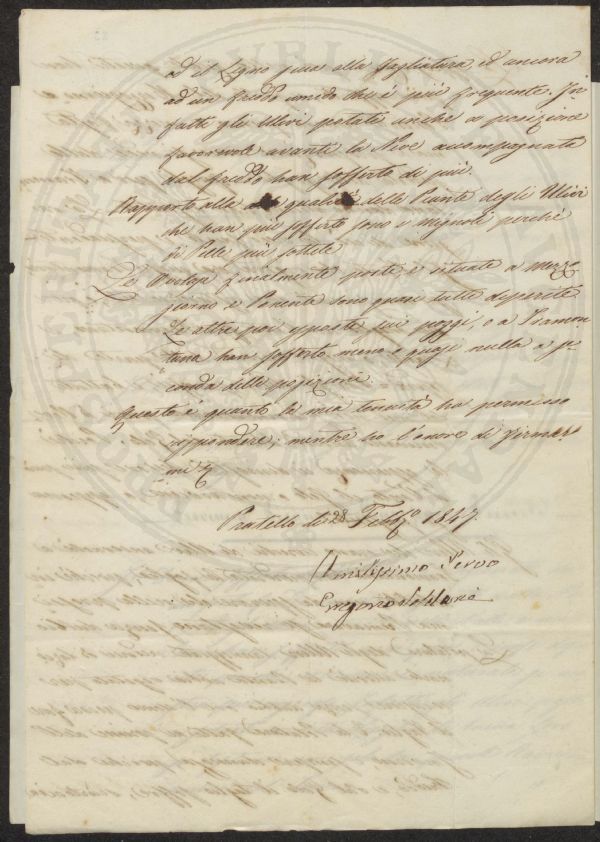 ed il Legno pria alla tagliatura ed ancora
ad un freddo umido che è più frequente. In-
fatti gli Ulivi potati anche a posizione
favorevole avanti la Neve accompagnata
dal freddo han sofferto di più.
Rapporto alla qualità delle Piante degli Ulivi
che han più sofferto sono i mignoli perché
di Pelle più sottile
Le finalmente poste, e situate a mezzo
giorno e Ponente sono quasi tutte deperite
Le altre poi opposte sui poggi, o a Tramon
tana han sofferto meno e quasi nulla a se
conda delle posizioni.
Questo è quanto la mia tenuità ha permesso
rispondere; mentre ho l'onore di firmar
mi
Pratello li 28 Febb.o 1847.
Umilissimo Servo